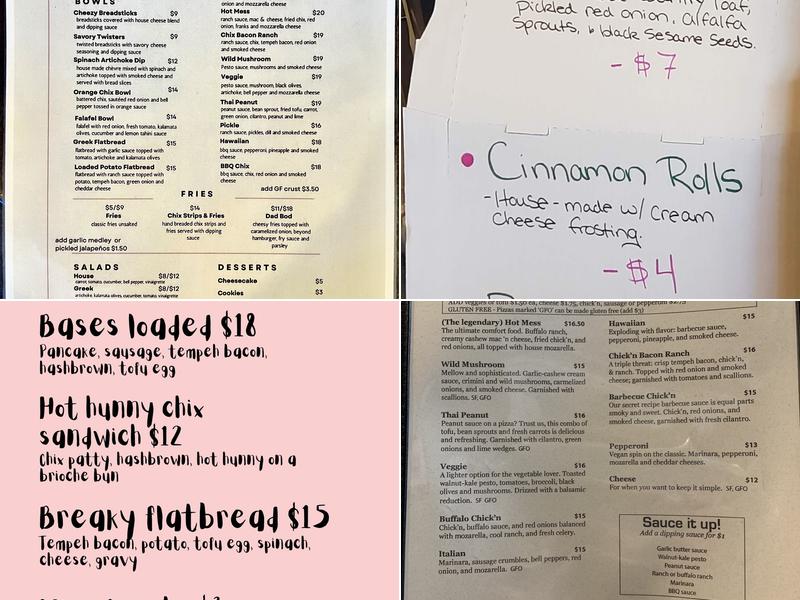 BOWLS
Cheezy Breadsticks $9
breadsticks covered in house cheese blend
and dipping sauce
Savory Twisters $9
twisted breadsticks with savory cheese
seasoning and dipping sauce
Spinach Artichoke Dip $12
house made chèvre mixed with spinach and
artichoke topped with smoked cheese and
served with bread slices
Orange Chix Bowl $14
battered chix, sautéed red onion and bell
pepper tossed in orange sauce
Falafel Bowl $14
falafel with red onion, fresh tomato, kalamata
olives, cucumber and lemon tahini sauce
Greek Flatbread $15
flatbread with garlic sauce topped with
tomato, artichoke and kalamata olives
Loaded Potato Flatbread $15
flatbread with ranch sauce topped with
potato, tempeh bacon, green onion and
cheddar cheese
onion and smoked cheese
Hot Mess $20
ranch sauce, mac & cheese, fried chix, red
onion, franks and mozzarella cheese
Chix Bacon Ranch $19
ranch sauce, chix, tempeh bacon, red onion
and smoked cheese
Wild Mushroom $19
Pesto sauce, mushrooms and smoked cheese
Veggie $19
pesto sauce, mushroom, black olives,
artichoke, bell pepper and mozzarella cheese
Thai Peanut $19
peanut sauce, bean sprout, fried tofu, carrot,
green onion, cilantro, peanut and lime
Pickle $16
ranch sauce, pickles, dill and smoked cheese
Hawaiian $18
bbq sauce, pepperoni, pineapple and smoked
cheese
BBQ Chix $18
bbq sauce, chix, red onion and smoked
cheese
add GF crust $3.50
FRIES
$5/$9
Fries
classic fries unsalted
$14
Chix Strips & Fries
hand breaded chix strips and
fries served with dipping
sauce
$11/$18
Dad Bod
cheesy fries topped with
caramelized onion, beyond
hamburger, fry sauce and
parsley
add garlic medley or
pickled jalapeños $1.50
SALADS
House $8/$12
carrot, tomato, cucumber, bell pepper, vinaigrette
Greek $8/$12
artichoke, kalamata olives, cucumber, tomato, vinaigrette
DESSERTS
Cheesecake $5
Cookies $3
loaf,
pickled red onion, alfalfa
sprouts, & black sesame seeds.
- $7
• Cinnamon Rolls
-House-made w/ cream
cheese frosting.
- $4
Bases loaded $18
Pancake, sausage, tempeh bacon,
hashbrown, tofu egg
Hot hunny chix
sandwich $12
Chix patty, hashbrown, hot hunny on a
brioche bun
Breaky flatbread $15
Tempeh bacon, potato, tofu egg, spinach,
cheese, gravy
ADD veggies or tofu $1.50 ea, cheese $1.75, chick'n, sausage or pepperoni $2.75
GLUTEN FREE - Pizzas marked 'GFO' can be made gluten free (add $3)
(The legendary) Hot Mess $16.50
The ultimate comfort food. Buffalo ranch,
creamy cashew mac 'n cheese, fried chick'n, and
red onions, all topped with house mozarella.
Wild Mushroom $15
Mellow and sophisticated. Garlic-cashew cream
sauce, crimini and wild mushrooms, carmelized
onions, and smoked cheese. Garnished with
scallions. SF, GFO
Thai Peanut $16
Peanut sauce on a pizza? Trust us, this combo of
tofu, bean sprouts and fresh carrots is delicious
and refreshing. Garnished with cilantro, green
onions and lime wedges. GFO
Veggie $16
A lighter option for the vegetable lover. Toasted
walnut-kale pesto, tomatoes, broccoli, black
olives and mushrooms. Drizzed with a balsamic
reduction. SF, GFO
Buffalo Chick'n $15
Chick'n, buffalo sauce, and red onions balanced
with mozarella, cool ranch, and fresh celery.
Italian $15
Marinara, sausage crumbles, bell peppers, red
onion, and mozarella. GFO
Hawaiian $15
Exploding with flavor: barbecue sauce,
pepperoni, pineapple, and smoked cheese.
Chick'n Bacon Ranch $16
A triple threat: crisp tempeh bacon, chick'n,
& ranch. Topped with red onion and smoked
cheese; garnished with tomatoes and scallions.
Barbecue Chick'n $15
Our secret recipe barbecue sauce is equal parts
smoky and sweet. Chick'n, red onions, and
smoked cheese, garnished with fresh cilantro.
Pepperoni $13
Vegan spin on the classic. Marinara, pepperoni,
mozarella and cheddar cheeses.
Cheese $12
For when you want to keep it simple. SF, GFO
Sauce it up!
Add a dipping sauce for $1
Garlic butter sauce
Walnut-kale pesto
Peanut sauce
Ranch or buffalo ranch
Marinara
BBQ sauce